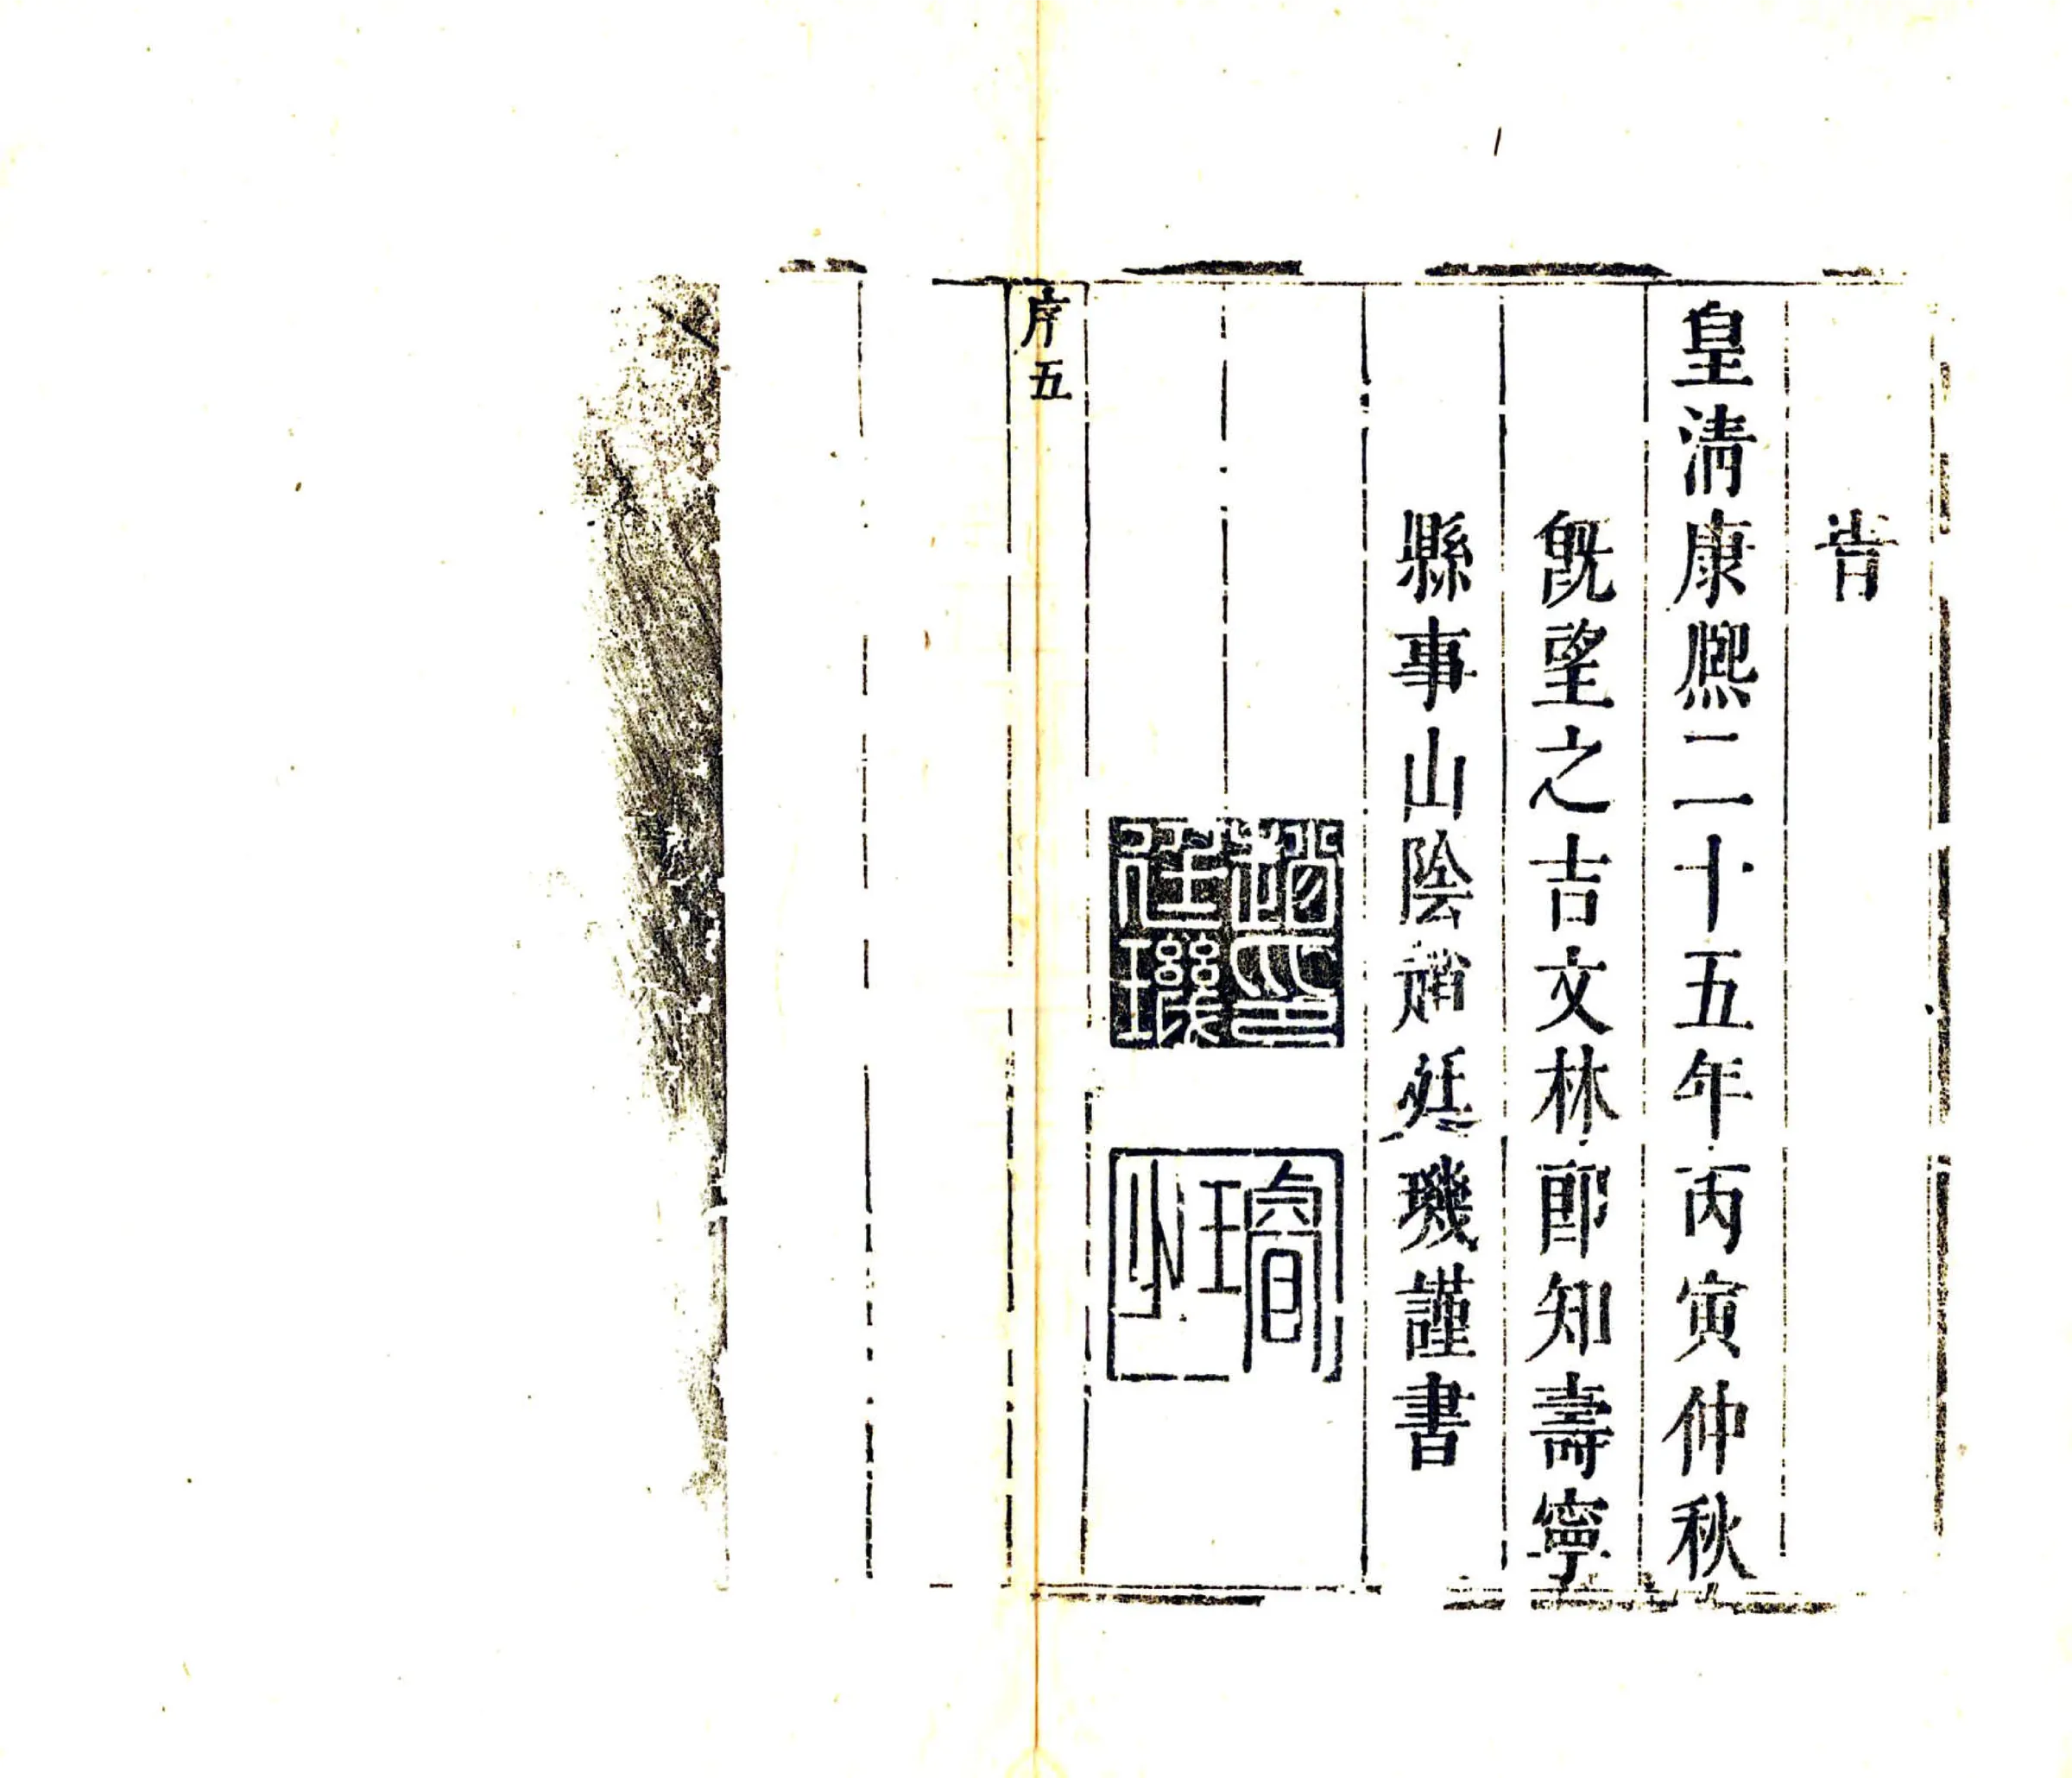 旹
皇淸康熙二十五年丙寅仲秋
旣望之吉文林郎知壽寧
縣事山陰趙廷璣謹書
趙氏廷璣
序五